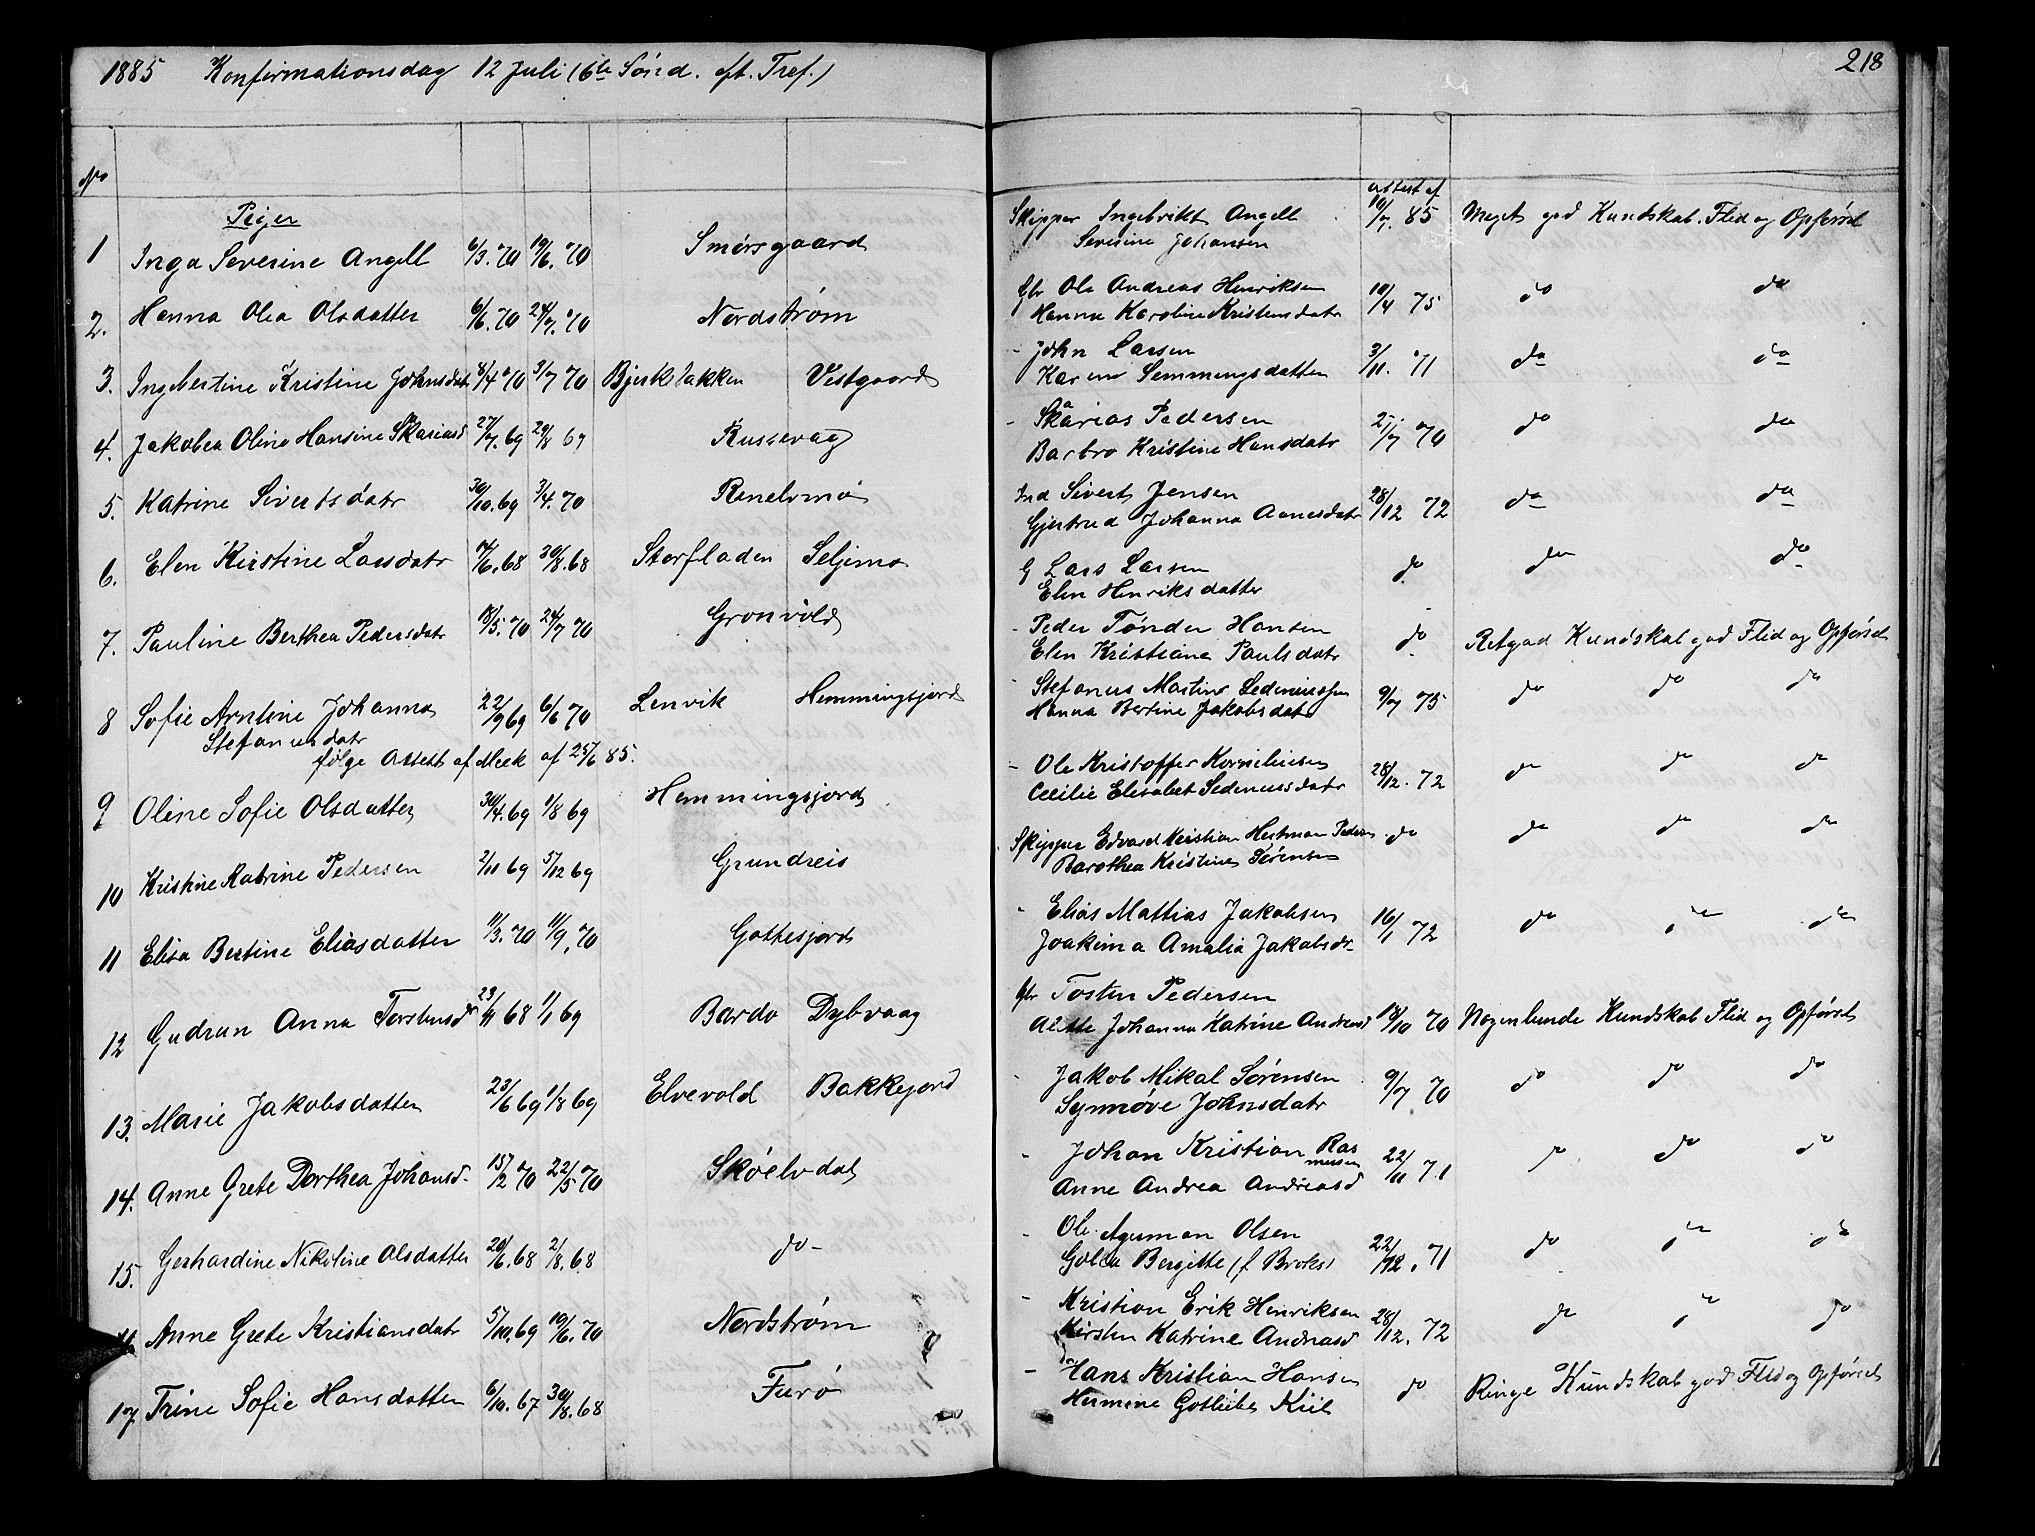 1885 Konfirmationsdag 12 Juli (6te Sönd. eft. Tref.)
218
No
Piger
attest af
1 Inga Severine Angell 6/3.70 19/6.70 Smörsgaard Skipper Ingebrikt Angell 10/7.85 Meget god Kundskab. Flid og Opførsel
Severine Johansen
2. Hanna Olea Olsdatter 6/6.70 24/7.70 Nordstrøm Gbr Ole Andreas Henriksen 10/4 75 do do
Hanna Karoline Kristensdatr
3. Ingebertine Kristine Johnsdatr 8/4 70 3/7 70 Bjerkebakken Vestgaard - John Larsen 3/11.71 do do
Karen Semmingsdatter
4. Jakobea Oline Hansine Skariasd 27/7.69 29/8 69 Russevaag - Skarias Pedersen 25/7 70 do do
Barbro Kristine Hansdatr
5. Katrine Sivertsdatr 30/10.69 3/4.70 Ranelvmo Ind Sivert Jensen 28/12 72 do do
Gjertrud Johanna Aanesdatr
6. Elen Kirstine Larsdatr 7/6.68 30/8.68 Storfladen Seljemo G Lars Larsen do do do
Elen Henriksdatter
7. Pauline Berthea Pedersdatr 18/5.70 24/7 70 Gronvold - Peder Tönder Hansen do Retgod Kundskab god Flid og Opførsel
Elen Kristiane Paulsdatr
8 Sofie Arntine Johanna 22/9 69 6/6 70 Lenvik Hemmingsjord - Stefanus Martin Sedeniussen 9/7 75 do do do
Stefanusdatr Hanna Bertine Jakobsdatr
følge Attest af Meek af 25/6 85.
9 Oline Sofie Olsdatter 30/4.69 1/8 69 Hemmingsjord - Ole Kristoffer Korneliusen 28/12.72 do do do
Cecilie Elisabet Sedeniusdatr
10 Kristine Katrine Pedersen 2/11 69 5/12 69 Grundreis Skipper Edvard Kristian Hertman Pedersen do do do do
Barothea Kristine Sörensen
11 Elisa Bertine Eliasdatter 11/3.70 11/9.70 Gottesjord - Elias Mattias Jakobsen 16/1 72 do do do
Joakima Amalia Jakobsdr
12 Gudrun Anna Torstensdr 23/11 68 1/1 69 Bardo Dybvaag Gbr Tosten Pedersen
Alette Johanna Katrine Andreasd 18/10 70 Nogenlunde Kundskab Flid og Opførsel
13. Marie Jakobsdatter 23/6 69 1/8 69 Elvevold Bakkejord - Jakob Mikal Sörensen 9/7 70 do do do
Synnöve Johnsdatr
14. Anne Grete Dorthea Johansd. 15/2 70 22/5 70 Skøelvdal - Johan Kristian Rasmusen 22/11 71 do do do
Anne Andrea Andreasd
15. Gerhardine Nikoline Olsdatter 20/6.68 2/8.68 do - Ole Aguman Olsen
Bergitte (f. Broks) 22/12.71 do do do
16 Anne Grete Kristiansdatr 5/10.69 19/6.70 Nordstrøm - Kristian Erik Henriksen 28/12.72 do do do
Kirsten Katrine Andreasd
17 Trine Sofie Hansdatter 6/10.67 30/8.68 Furø - Hans Kristian Hansen do Ringe Kundskab god Flid og Opførsel
Hermine Gotliebe Kiil